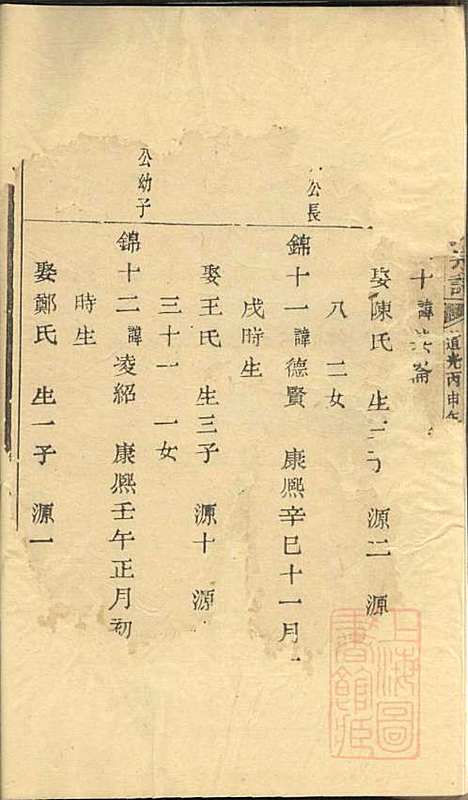 宗譜 道光丙申年
十 諱
娶陳氏 生三子 源二 源
八 二女
公長
錦十一 諱德賢 康熙辛巳十一月
戌時生
娶王氏 生三子 源十 源
三十一 一女
公幼子
錦十二 諱凌紹 康熙壬午正月初
時生
娶鄭氏 生一子 源一
上海圖書館藏